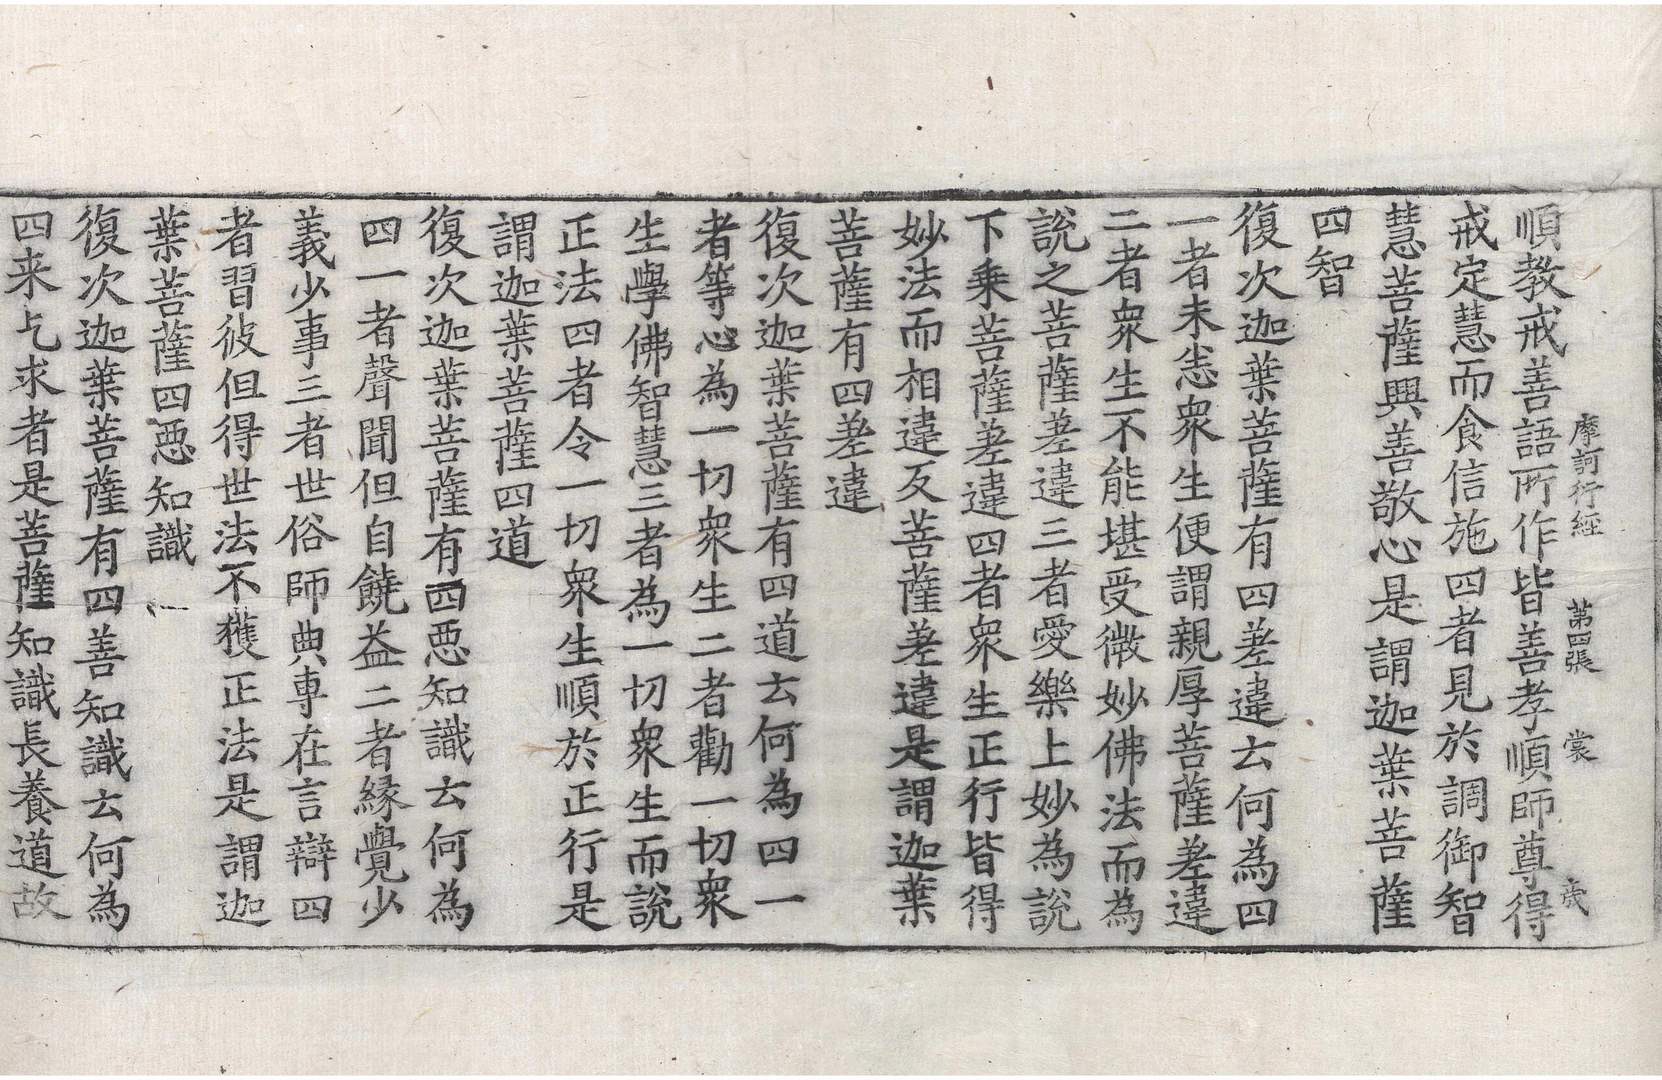 摩訶行經 第四張 裳 歲
順教戒善語所作皆善孝順師尊得
戒定慧而食信施四者見於調御智
慧菩薩興善敬心是謂迦葉菩薩
四智
復次迦葉菩薩有四差違云何為四
一者未悉眾生便謂親厚菩薩差違
二者眾生不能堪受微妙佛法而為
說之菩薩差違三者愛樂上妙為說
下乘菩薩差違四者眾生正行皆得
妙法而相違反菩薩差違是謂迦葉
菩薩有四差違
復次迦葉菩薩有四道云何為四一
者等心為一切眾生二者勸一切眾
生學佛智慧三者為一切眾生而說
正法四者令一切眾生順於正行是
謂迦葉菩薩四道
復次迦葉菩薩有四惡知識云何為
四一者聲聞但自饒益二者緣覺少
義少事三者世俗師典專在言辯四
者習彼但得世法不獲正法是謂迦
葉菩薩四惡知識
復次迦葉菩薩有四善知識云何為
四来乞求者是菩薩知識長養道故